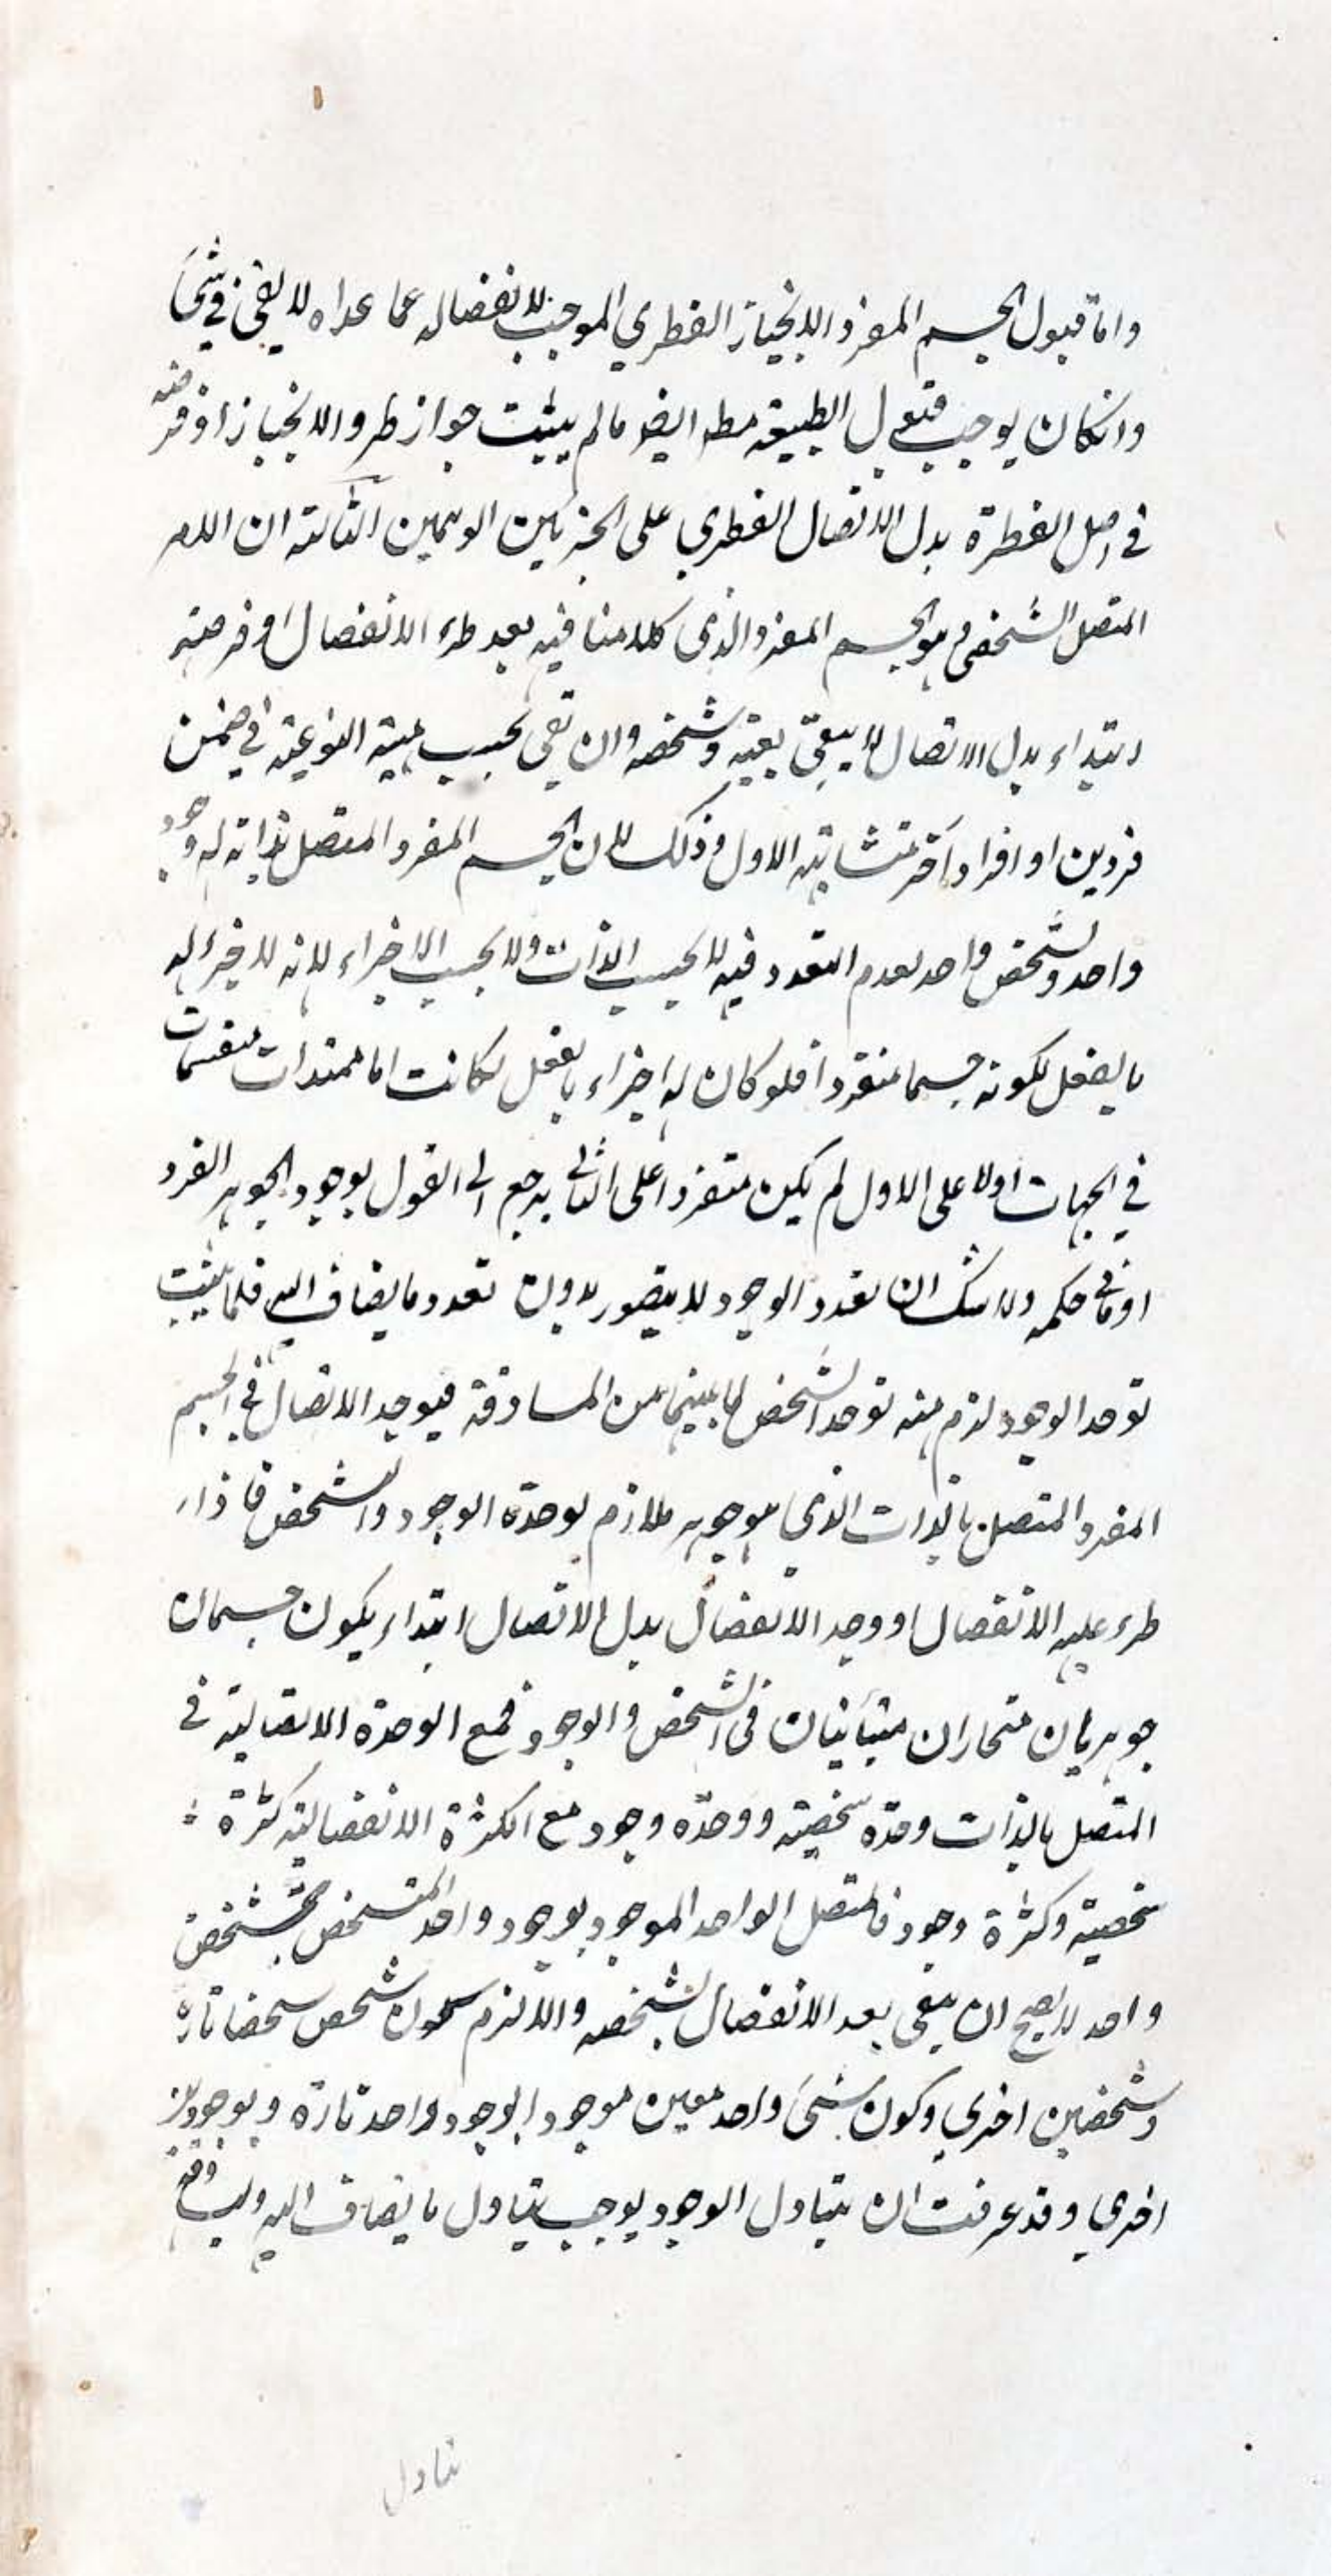 واما قبول الجسم المفرد الانحياز الفطري الموجب لانفصاله عما عداه لا يفى فى شئ
وانكان يوجب قبول الطبيعة مطه ايضا ما لم يثبت جواز طرو الانحياز او فرضه
في اصل الفطرة بدل الاتصال الفطري على الجزئين الوهمين الثالثة ان الامر
المتصل الشخصى وهو الجسم المفرد الذى كلامنا فيه بعد طرء الانفصال او فرضه
ابتداء بدل الاتصال لا يبقى بعينه وشخصه وان بقى بحسب مهيته النوعية في ضمن
فردين او افراد آخر متشابهة الاول وذلك لان الجسم المفرد المتصل بذاته له وجود
واحد وتشخص واحد لعدم التعدد فيه لا بحسب الذات ولا بحسب الاجزاء لانه لا جزء له
بالفعل لكونه جسما منفردا فلو كان له اجزاء بالفعل لكانت اما ممتدات منقسمات
في الجهات اولا على الاول لم يكن منفردا على الثانى يرجع الى القول بوجود الجوهر الفرد
او ما فى حكمه ولا شك ان تعدد الوجود لا يتصور بدون تعدد ما يضاف اليه فلما ثبت
توحد الوجود لزم منه توحد التشخص لما بينهما من المساوقة فيوجد الاتصال في الجسم
المفرد المتصل بالذات الذي هو جوهر ملازم لوحدة الوجود والتشخص فاذا
طرء عليه الانفصال او وجد الانفصال بدل الاتصال ابتداء يكون جسمان
جوهريان منحازان متباينان فى الشخص والوجود فمع الوحدة الاتصالية في
المتصل بالذات وحدة شخصية ووحدة وجود مع الكثرة الانفصالية كثرة
شخصية وكثرة وجود فالمتصل الواحد الموجود بوجود واحد المتشخص بتشخص
واحد لا يصح ان يبقى بعد الانفصال بشخصه والا لزم كون شخص شخصا تارة
وشخصين اخري وكون شئ واحد معين موجودا بوجود واحد تارة وبوجودين
اخري وقد عرفت ان تبادل الوجود يوجب تبادل ما يضاف اليه
تبادل